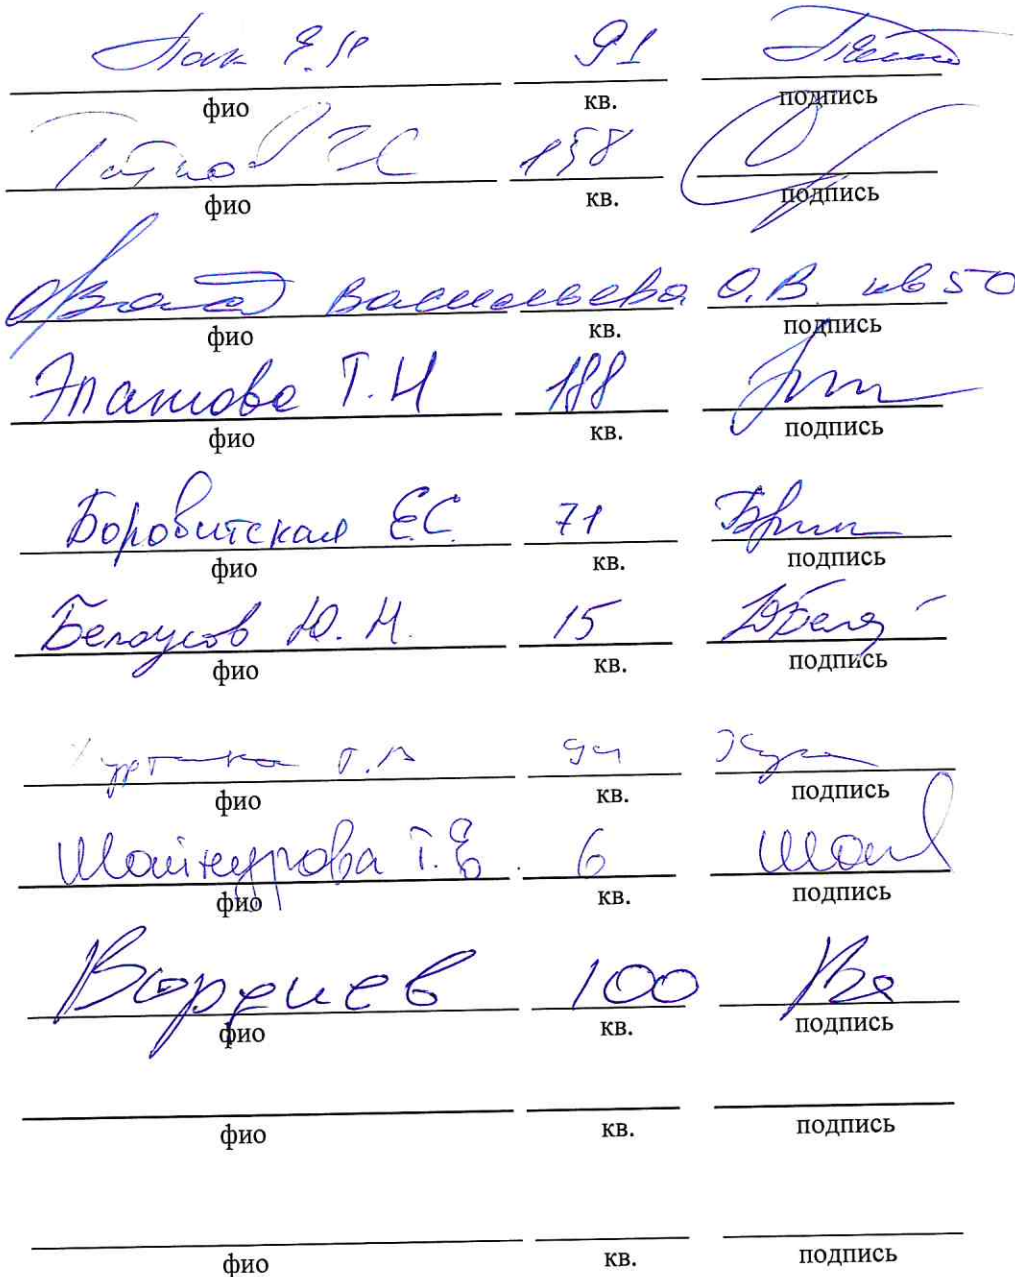 Пак Е.И 91
фио кв. подпись
158
фио кв. подпись
Васильева О.В. кв 50
фио кв. подпись
Т.Н 188
фио кв. подпись
Боровитская Е.С. 71
фио кв. подпись
Белоусов Ю.Н. 15
фио кв. подпись
94
фио кв. подпись
Шайнурова Т.Е. 6
фио кв. подпись
100
фио кв. подпись
фио кв. подпись
фио кв. подпись